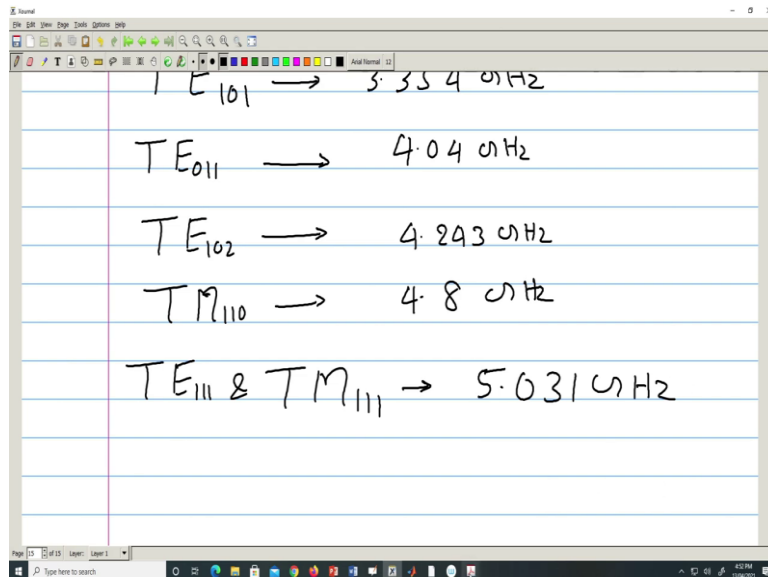 Xournal
File Edit View Page Tools Options Help
Arial Normal 12
TE101 → 3.354 GHz
TE011 → 4.04 GHz
TE102 → 4.243 GHz
TM110 → 4.8 GHz
TE111 & TM111 → 5.031 GHz
Page 15 of 15 Layer: Layer 1
Type here to search
4:52 PM
13/04/2021